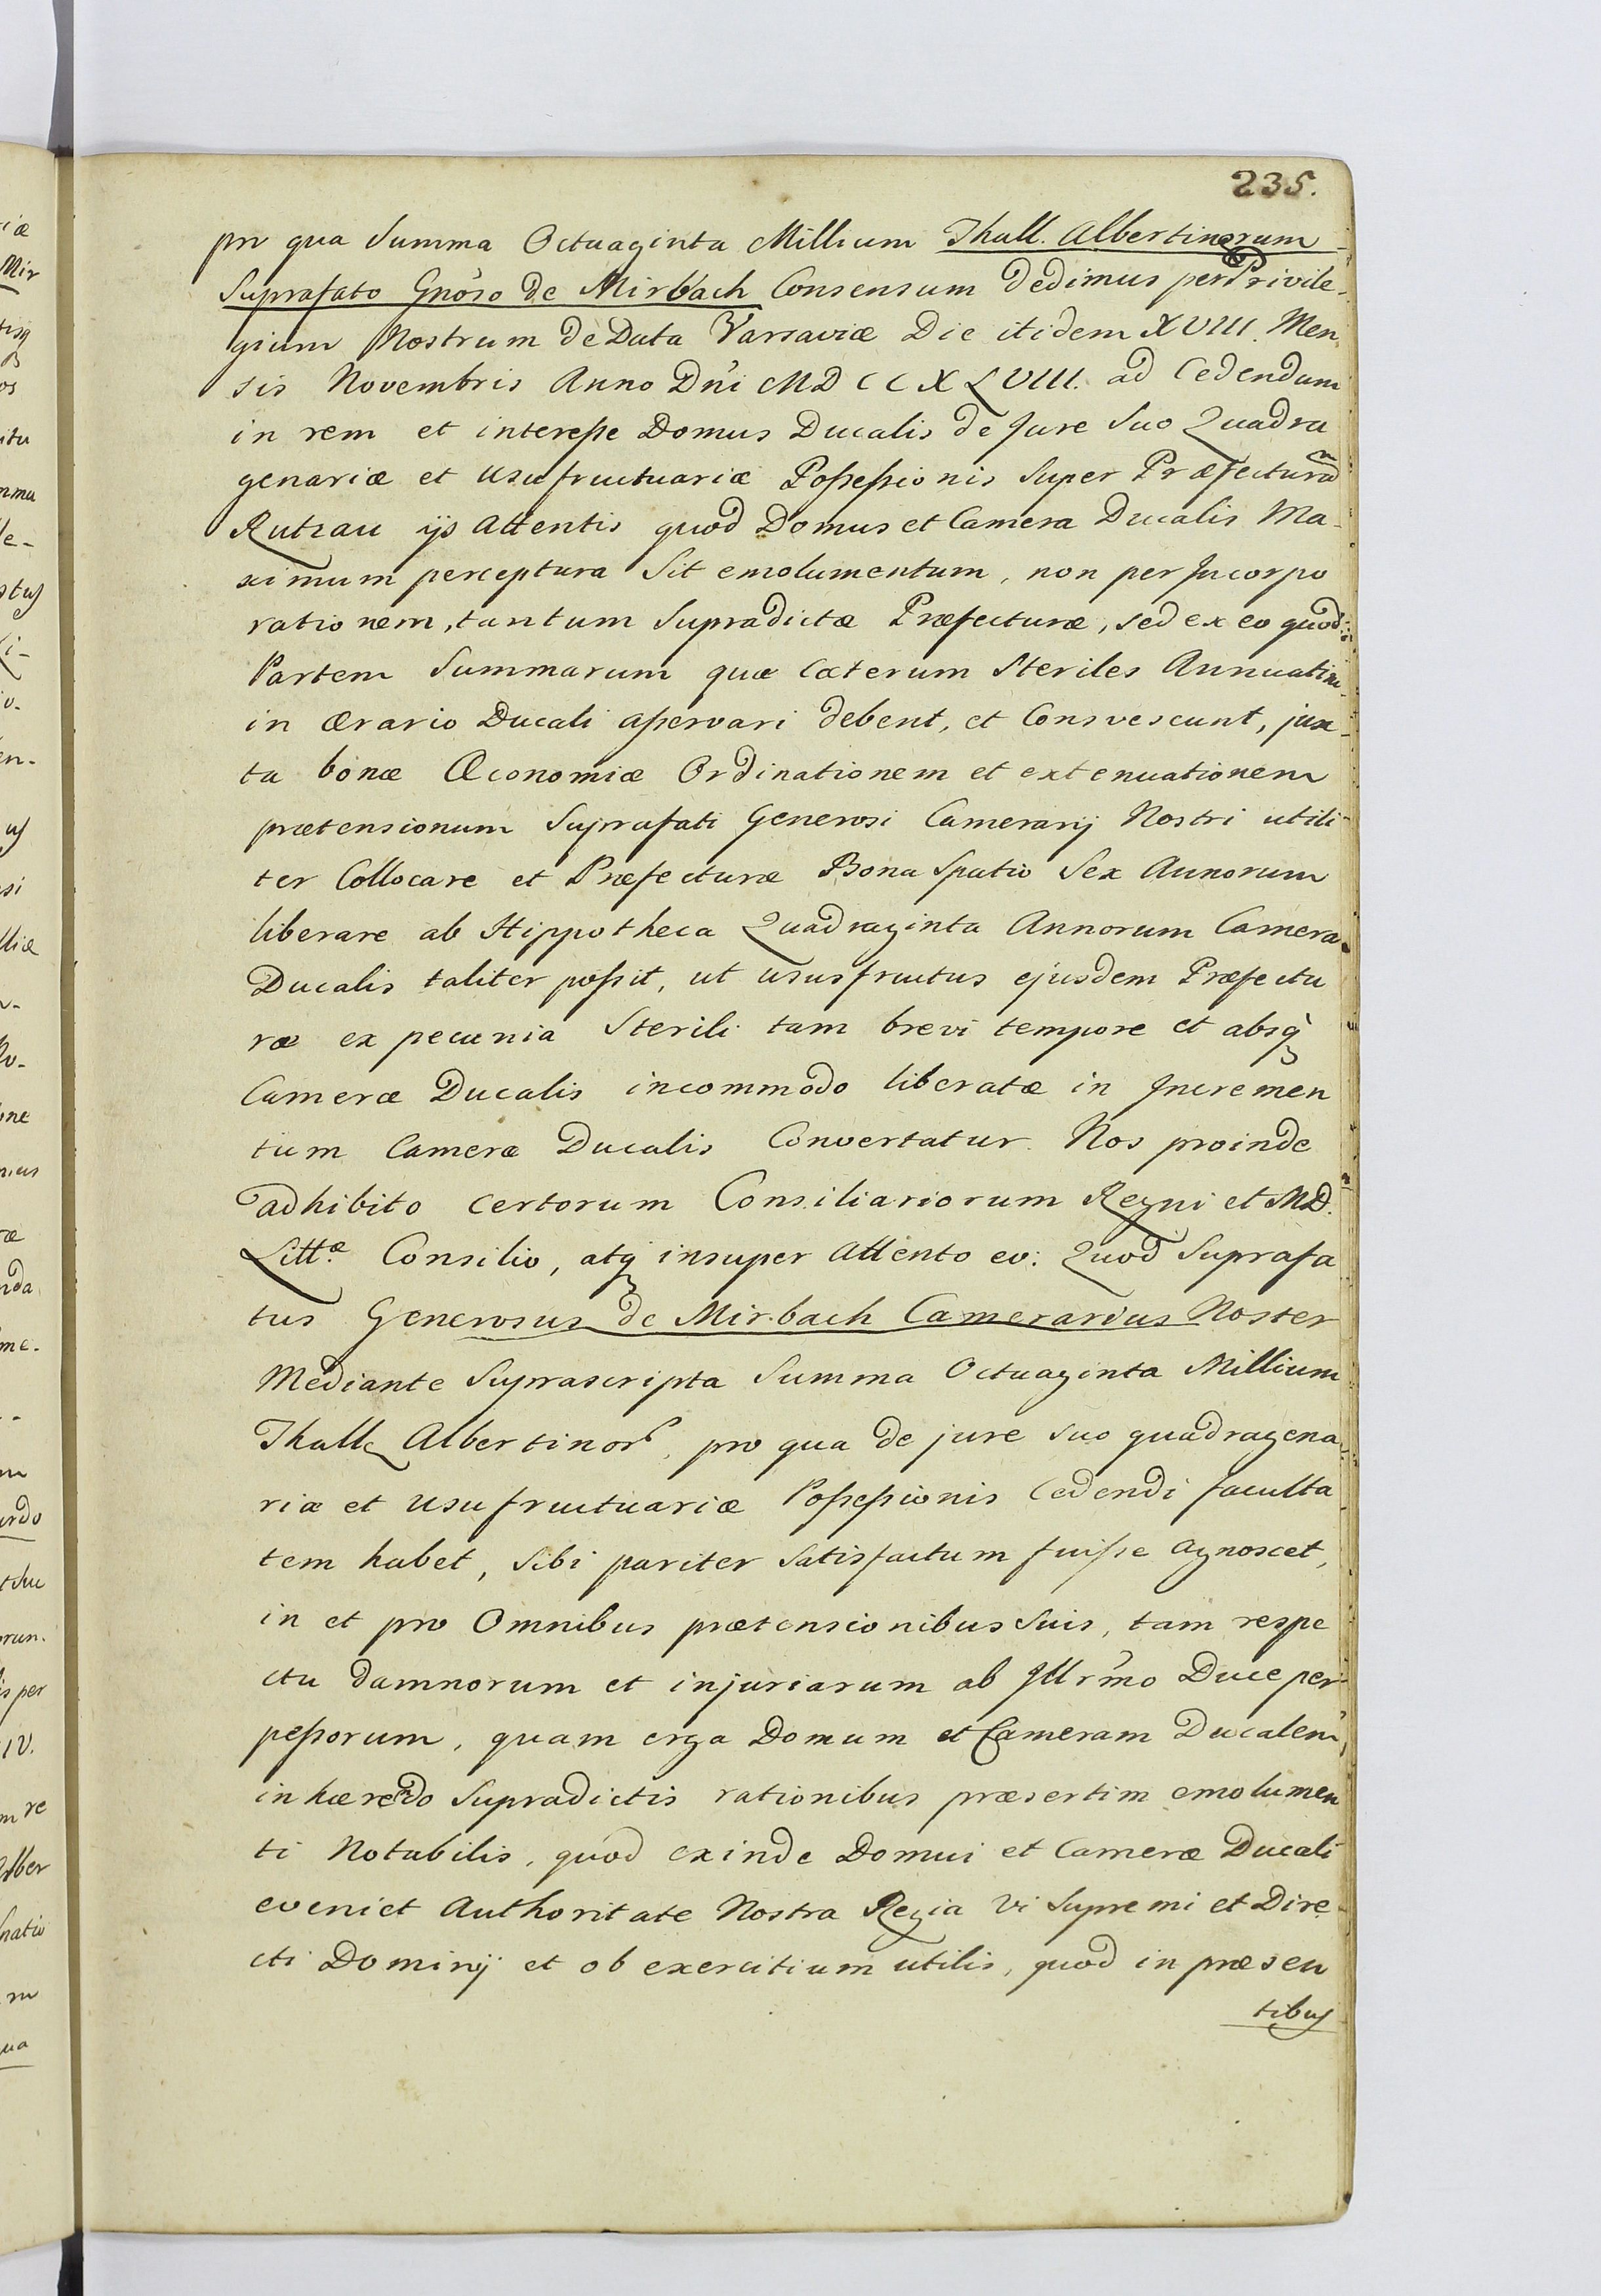 235.
pro qua Summa Octuaginta Millium Thall. Albertinorum
Suprafato Gnoso de Mirbach Consensum dedimus per Privile-
gium Nostrum de Data Varsaviæ Die itidem XVIII. Men
sis Novembris Anno Dni MDCCXLVIII. ad Cedendum
in rem et interesse Domus Ducalis de Jure Suo Quadra
genariæ et usufructuariæ Possessionis Super Præfectura
Rutzau ijs Attentis quod Domus et Camera Ducalis Ma-
ximum perceptura Sit emolumentum, non per Incorpo
rationem, tantum Supradictæ Præfecturæ, sed ex eo quod
Partem Summarum quæ Cæterum Steriles Annuatim
in Ærario Ducali asservari debent, et Consvescunt, jux-
ta bonæ Œconomiæ Ordinationem et extenuationem
prætensionum Suprafati Generosi Camerarij Nostri utili-
ter Collocare et Præfecturæ Bona Spatio Sex Annorum
liberare ab Hippotheca Quadraginta Annorum Camera
Ducalis taliter possit, ut ususfructus ejusdem Præfectu
ræ ex pecunia Sterili tam brevi tempore et absq
Cameræ Ducalis incommodo liberatæ in Incremen
tum Cameræ Ducalis Convertatur. Nos proinde
adhibito certorum Consiliariorum Regni et M.D.
Littæ Consilio, atq insuper Attento eo: Quod Suprafa
tus Generosus de Mirbach Camerarius Noster
Mediante Suprascripta Summa Octuaginta Millium
Thall Albertinor, pro qua de jure suo quadragena-
riæ et usufructuariæ Possessionis Cedendi faculta
tem habet, Sibi pariter Satisfactum fuisse agnoscet,
in et pro Omnibus prætensionibus Suis, tam respe
ctu damnorum et injuriarum ab Illrmo Duce per-
pessorum, quam erga Domum et Cameram Ducalem,
inhærendo Supradictis rationibus præsertim emolumen
ti Notabilis, quod exinde Domui et Cameræ Ducali
eveniet Authoritate Nostra Regia Vi Supremi et Dire-
cti Dominij et ob exercitium utilis, quod in præsen
tibus
iæ
Mir
os
itu
le-
i-
en-
si
liæ
ine
da
me.
rdo
per
IV.
m re
Alber
natio
m
ua